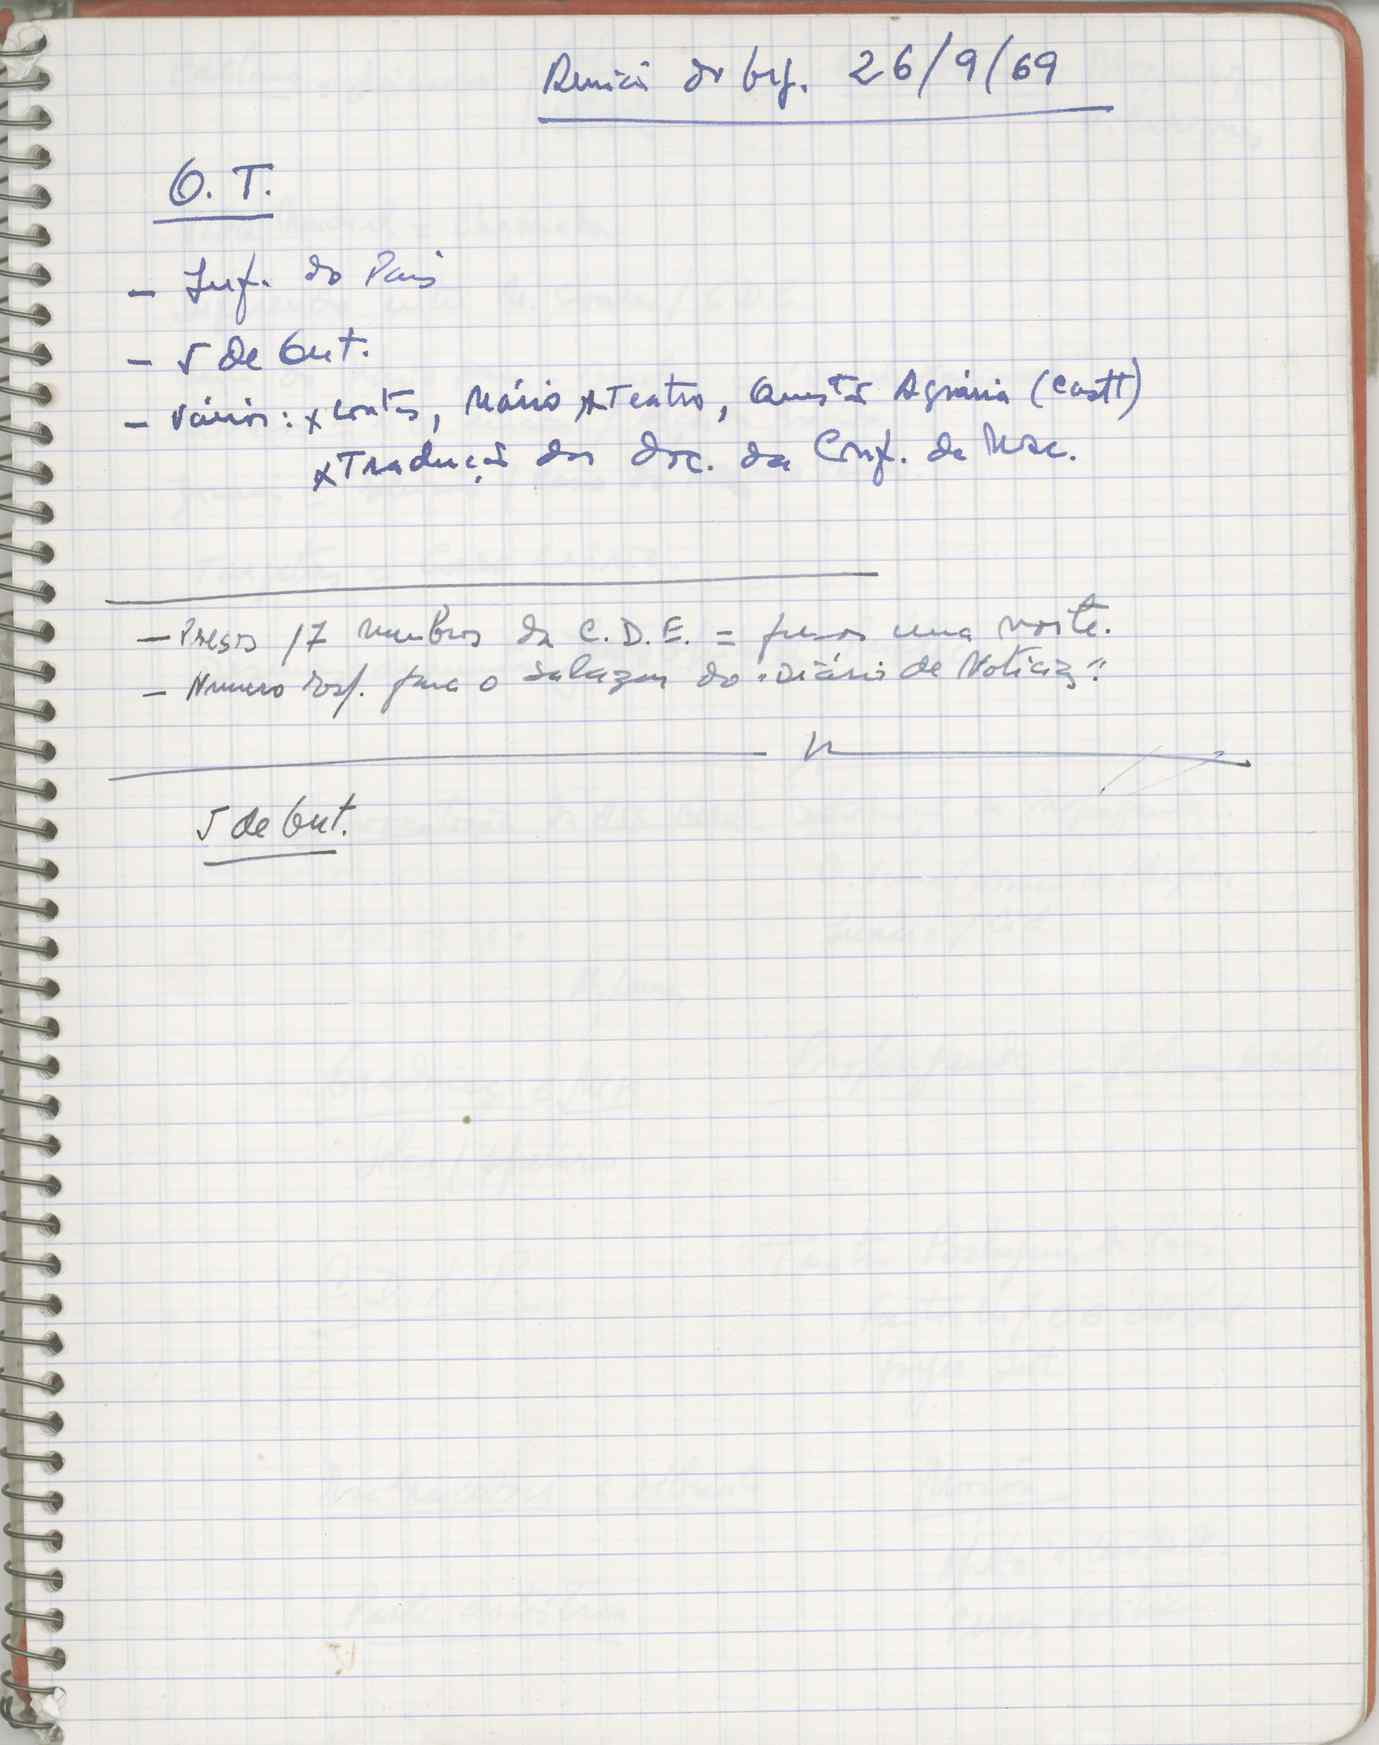 Reunião do Org. 26/9/69
O. T.
- Inf. do País
- 5 de Out.
- Vários: x contas, Mário, x Teatro, Questão Agrária (Castt)
x Tradução dos doc. da Conf. de Mosc.
- Presos 17 membros da C. D. E. = presos uma noite.
- Número esp. para o Salazar do "Diário de Notícias"
5 de Out.